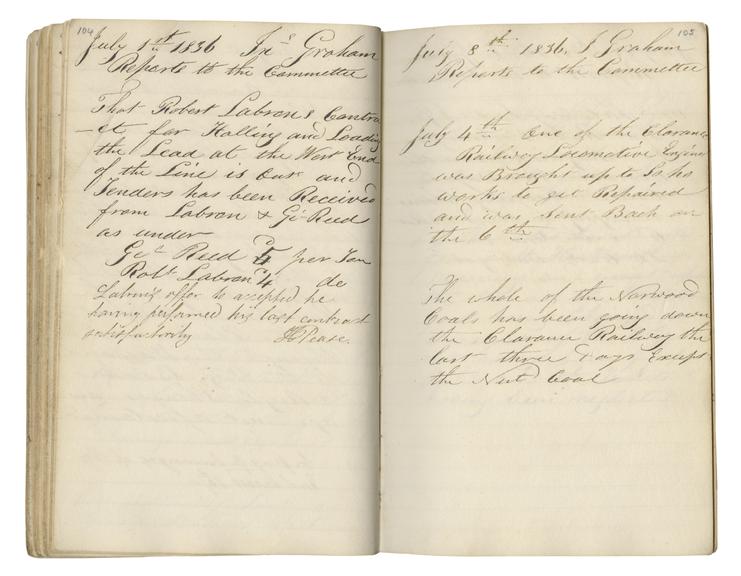 104
July 1st 1836 Jns Graham
Reports to the Committee
That Robert Labrons Contra
-ct for Halling and Loading
the Lead at the West End
of the Line is Out and
Tenders has been Received
from Labron & Geo Reed
as under
Geo Reed 5 per Ton
Robt Labron 4 do
Labron's offer is accepted he
having performed his last contract
satisfactorily HPease.
105
July 8th 1836. J Graham
Reports to the Committee
July 4th One of the Clarance
Railway Locomotive Engines
was Brought up to
works to get Repaired
and was Sent Back on
the 6th
The whole of the Norwood
Coals has been going down
the Clarance Railway the
last three Days Except
the Nut Coal